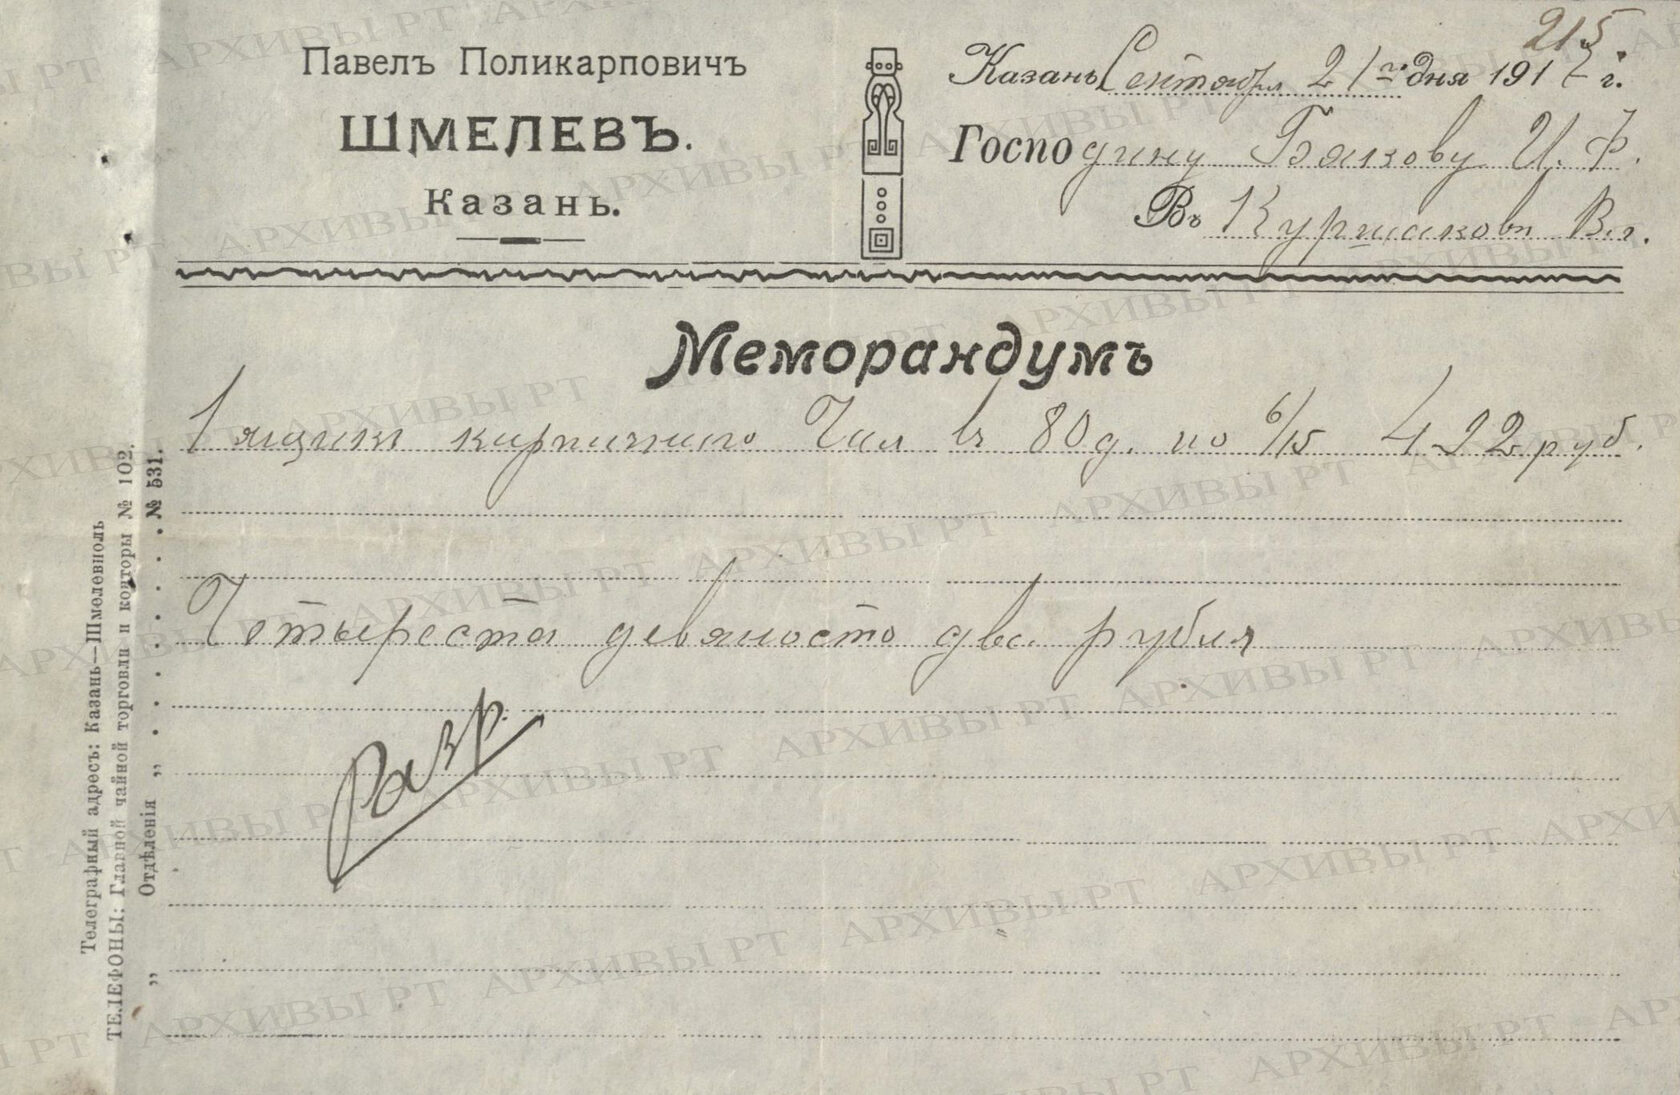 215
Павелъ Поликарповичъ
ШМЕЛЕВЪ.
Казань.
Казань Сентября 21 го дня 1917 г.
Господину Бякову И. Ф.
Въ
Меморандумъ
1 ящикъ кирпичного Чая въ 80 д. по 6/15 492 руб.
Четыреста девяносто два рубля
Разр.
Телеграфный адресъ: Казань—Шмелевполь
ТЕЛЕФОНЫ: Главной чайной торговли и конторы № 102.
„ Отдѣленія „ . . . . . . № 531.
АРХИВЫ РТ